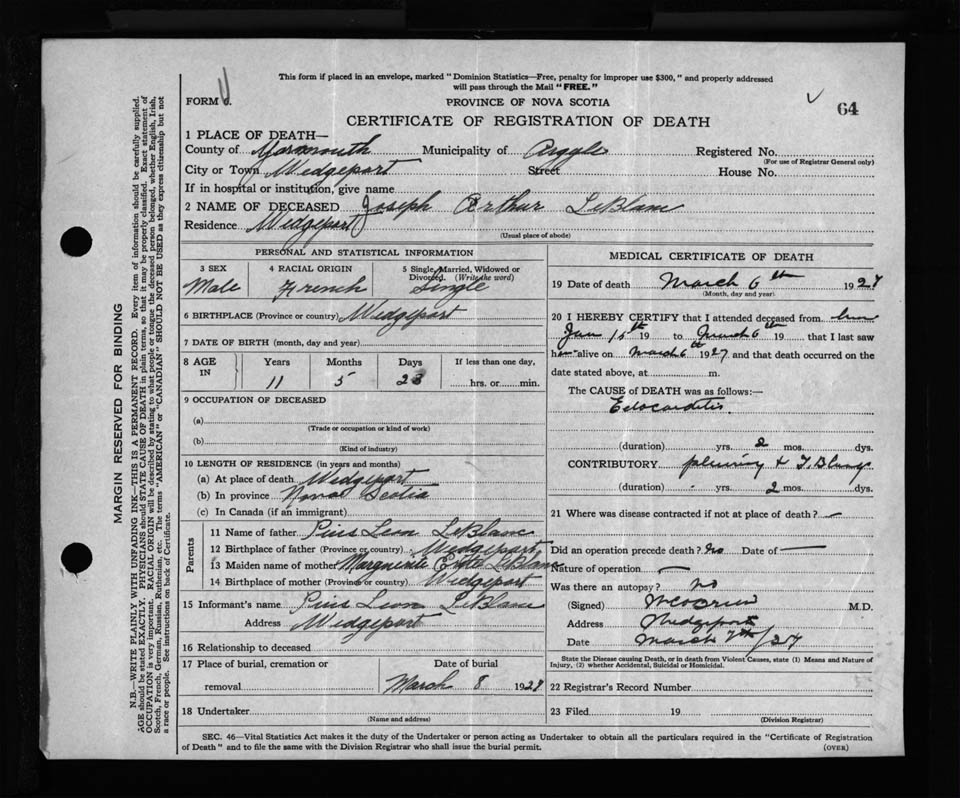 This form if placed in an envelope, marked "Dominion Statistics—Free, penalty for improper use $300," and properly addressed
will pass through the Mail "FREE."
FORM 6.
PROVINCE OF NOVA SCOTIA
64
CERTIFICATE OF REGISTRATION OF DEATH
1 PLACE OF DEATH—
County of Yarmouth Municipality of Argyle Registered No.
(For use of Registrar General only)
City or Town Wedgeport Street House No.
If in hospital or institution, give name
2 NAME OF DECEASED Joseph Arthur LeBlanc
Residence Wedgeport
(Usual place of abode)
PERSONAL AND STATISTICAL INFORMATION
3 SEX 4 RACIAL ORIGIN 5 Single, Married, Widowed or
Divorced. (Write the word)
Male French Single
6 BIRTHPLACE (Province or country) Wedgeport
7 DATE OF BIRTH (month, day and year)
8 AGE IN Years Months Days If less than one day,
11 5 28 hrs. or min.
9 OCCUPATION OF DECEASED
(a)
(Trade or occupation or kind of work)
(b)
(Kind of industry)
10 LENGTH OF RESIDENCE (in years and months)
(a) At place of death Wedgeport
(b) In province Nova Scotia
(c) In Canada (if an immigrant)
Parents
11 Name of father Pius Leon LeBlanc
12 Birthplace of father (Province or country) Wedgeport
13 Maiden name of mother Marguerite LeBlanc
14 Birthplace of mother (Province or country) Wedgeport
15 Informant's name Pius Leon LeBlanc
Address Wedgeport
16 Relationship to deceased
17 Place of burial, cremation or Date of burial
removal March 8 1927
18 Undertaker
(Name and address)
MEDICAL CERTIFICATE OF DEATH
19 Date of death March 6th 1927
(Month, day and year)
20 I HEREBY CERTIFY that I attended deceased from
Jan 15th 19 to March 6th 19 that I last saw
h alive on March 6 1927 and that death occurred on the
date stated above, at m.
The CAUSE of DEATH was as follows:—
(duration) yrs. 2 mos. dys.
CONTRIBUTORY pleurisy & T.B. Lungs
(duration) - yrs. 2 mos. dys.
21 Where was disease contracted if not at place of death? —
Did an operation precede death? No Date of —
Nature of operation —
Was there an autopsy? No
(Signed) M.D.
Address Wedgeport
Date March 7th/27
State the Disease causing Death, or in death from Violent Causes, state (1) Means and Nature of
Injury, (2) whether Accidental, Suicidal or Homicidal.
22 Registrar's Record Number
23 Filed 19
(Division Registrar)
SEC. 46—Vital Statistics Act makes it the duty of the Undertaker or person acting as Undertaker to obtain all the particulars required in the "Certificate of Registration
of Death" and to file the same with the Division Registrar who shall issue the burial permit.
(OVER)
MARGIN RESERVED FOR BINDING
N.B.—WRITE PLAINLY WITH UNFADING INK—THIS IS A PERMANENT RECORD. Every item of information should be carefully supplied.
AGE should be stated EXACTLY. PHYSICIANS should STATE CAUSE OF DEATH in plain terms, so that it may be properly classified. Exact statement of
OCCUPATION is very important. RACIAL ORIGIN will be described by stating to what people or tongue the deceased person belonged, whether English, Irish,
Scotch, French, German, Russian, Ruthenian, etc. The terms "AMERICAN" or "CANADIAN" SHOULD NOT BE USED as they express citizenship but not
a race or people. See instructions on back of Certificate.